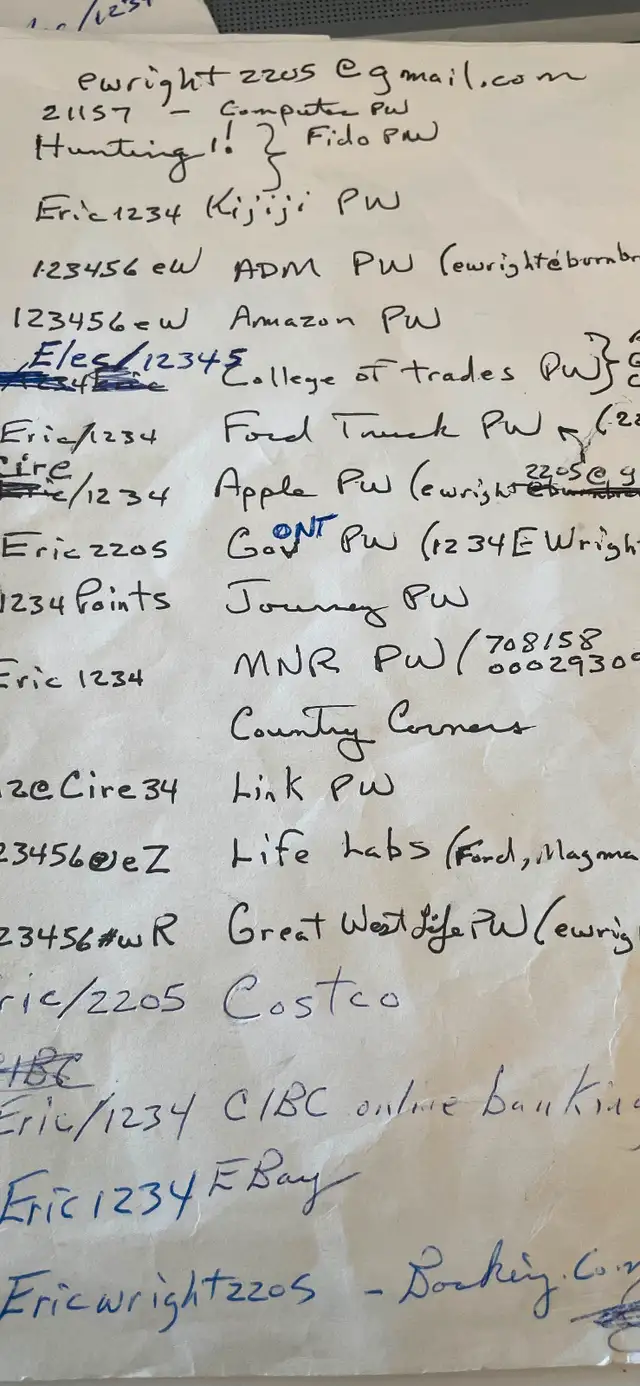 ewright2205@gmail.com
21157 - Computer PW
Hunting1! } Fido PW
Eric1234 Kijiji PW
123456eW ADM PW (ewright@burnbr
123456eW Amazon PW
Eles/12345
College of trades PW}
Eric/1234 Ford Truck PW (22
Cire
/1234 Apple PW (ewright 2205@g
ONT
Eric2205 Gov PW (1234EWrigh
1234Points Journey PW
Eric 1234 MNR PW (708158
00029309
Country Corners
12@Cire34 Link PW
23456@eZ Life Labs (Ford, Magma
23456#wR Great West Life PW (ewrig
ric/2205 Costco
CIBC
Eric/1234 CIBC online banking
Eric1234 EBay
Ericwright2205 - Booking.com